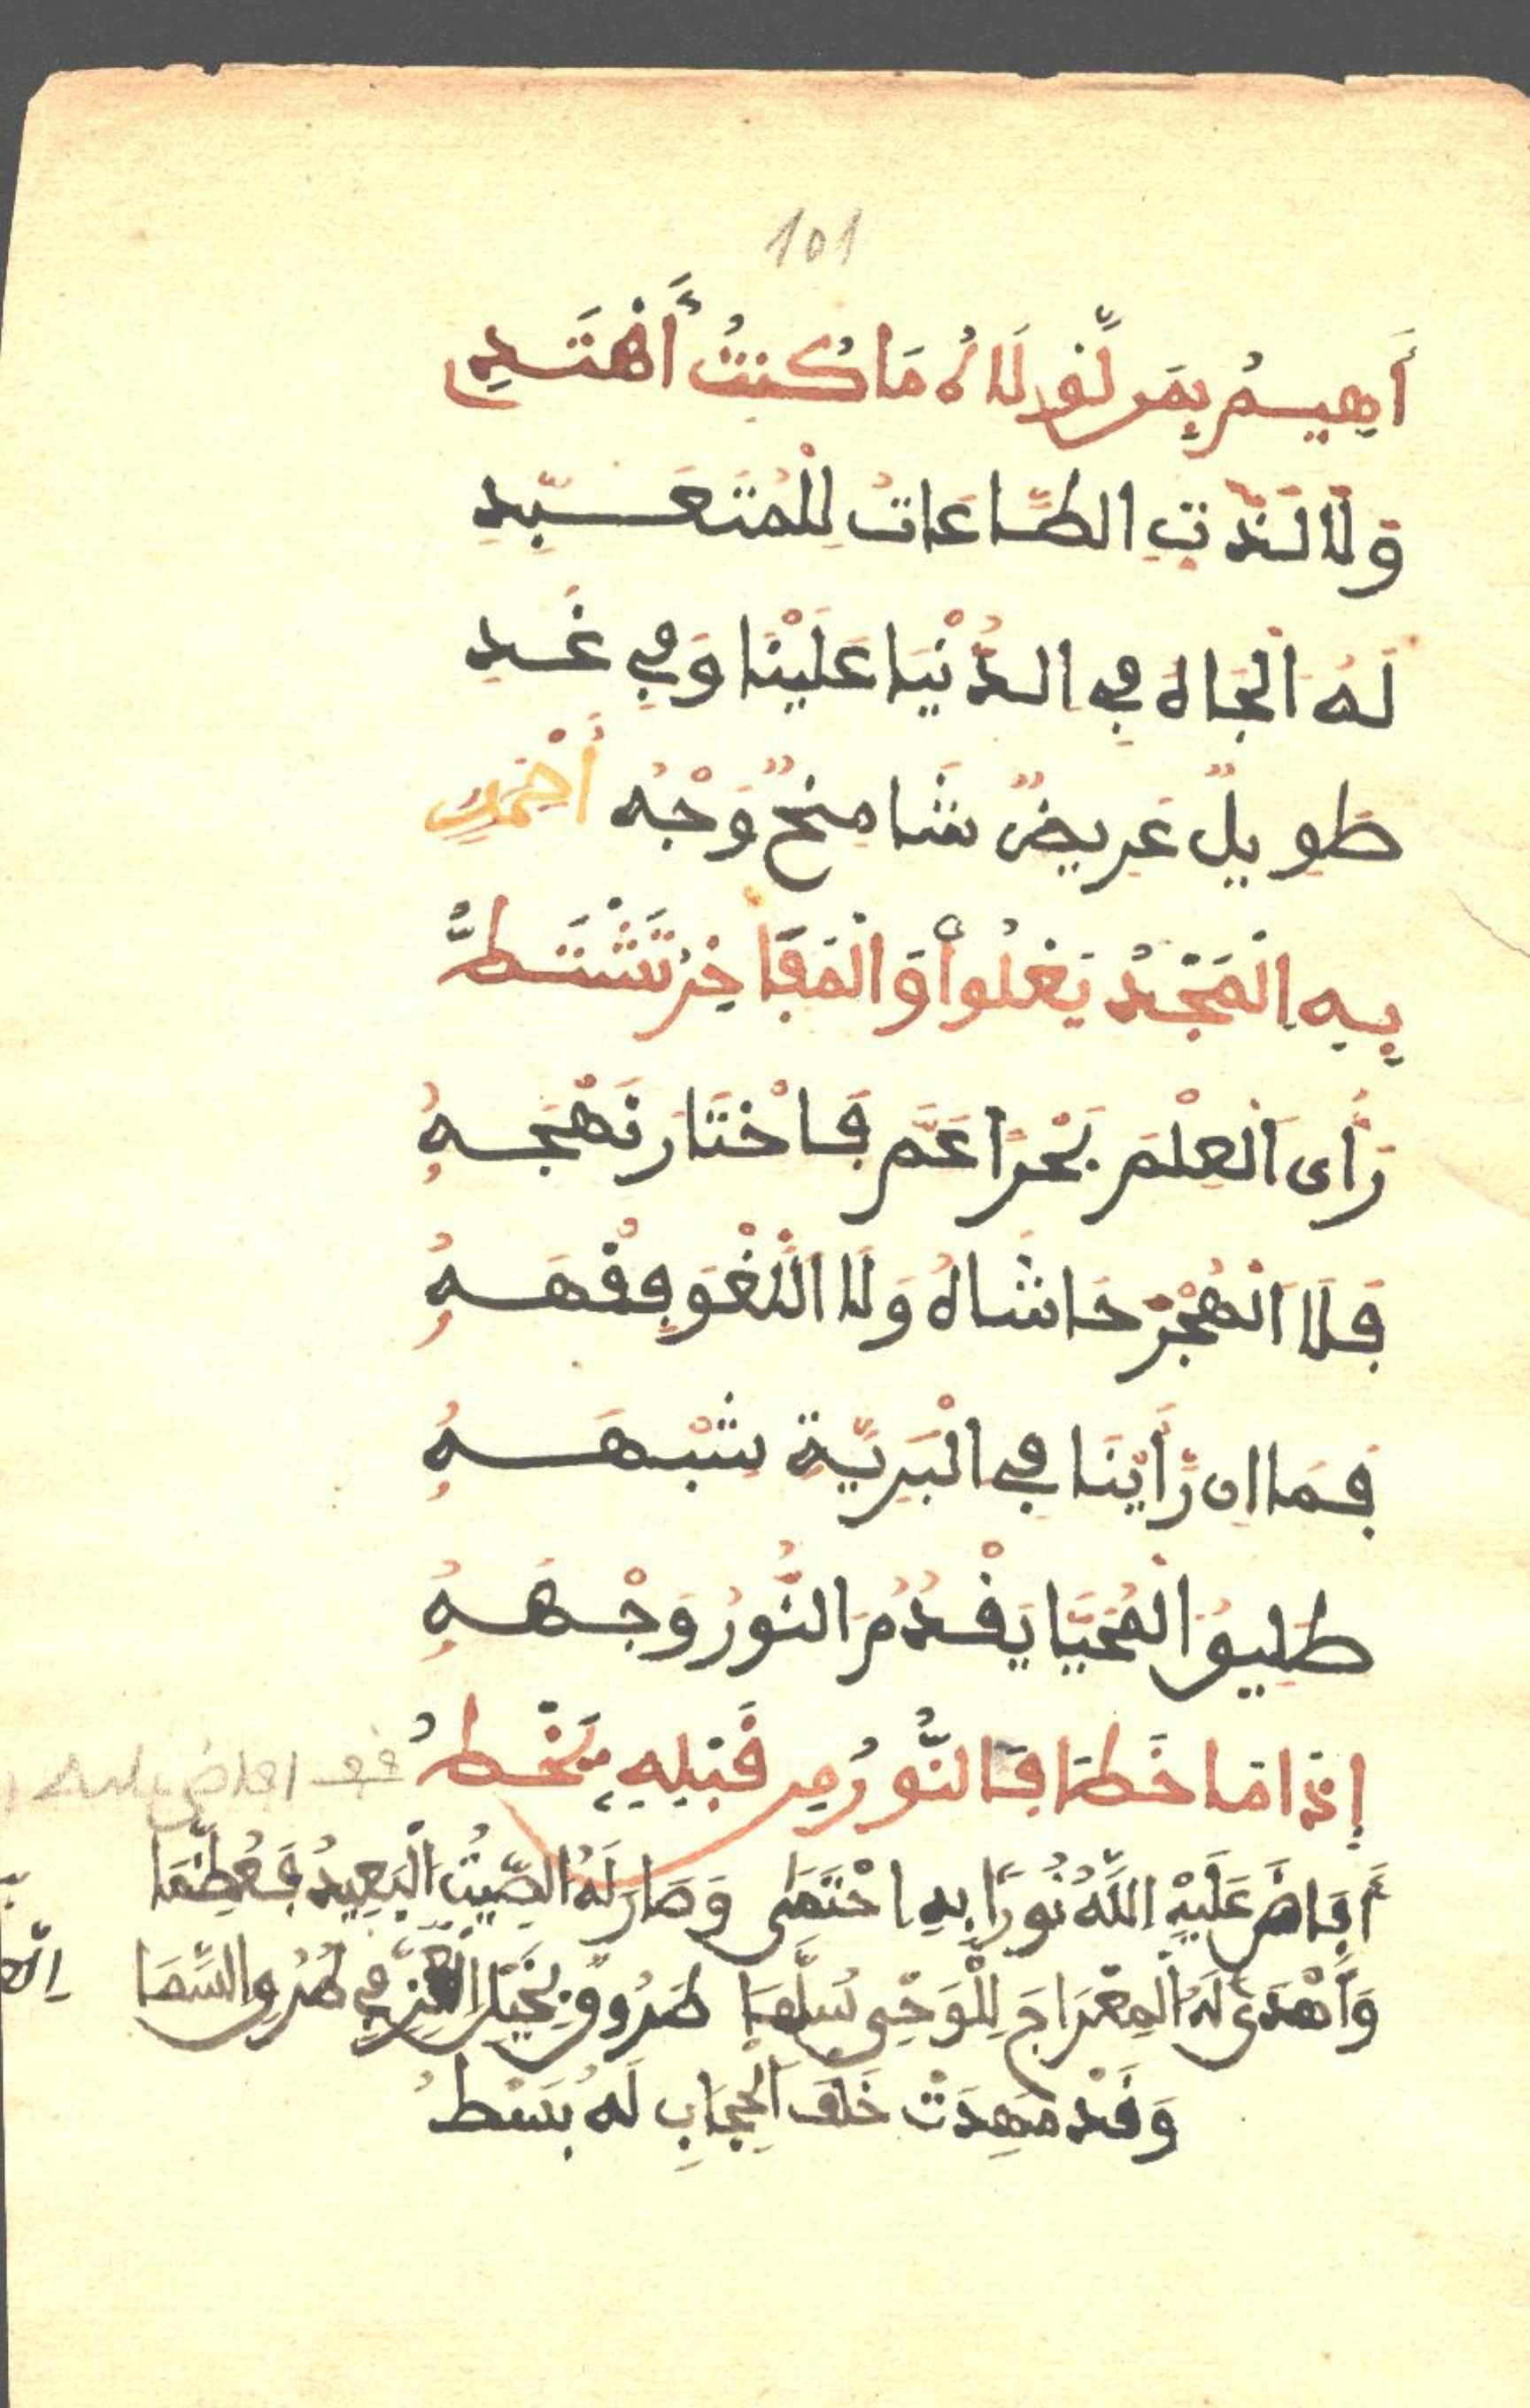 101
أَهِيمُ بِمَن لَّوْلَاهُ مَا كُنتُ أَهْتَدِي
وَلَا لَذَّتِ الطَّاعَاتُ لِلْمُتَعَبِّدِ
لَهُ الْجَاهُ فِي الدُّنْيَا عَلَيْنَا وَفِي غَدِ
طَوِيلٌ عَرِيضٌ شَامِخٌ وَجْهُ أَحْمَدِ
بِهِ الْمَجْدُ يَعْلُوا وَالْمَفَاخِرُ تَشْتَطُّ
رَأَى الْعِلْمَ بَحْرًا عَمَّ فَاخْتَارَ نَهْجَهُ
فَلَا الْهُجْرَ حَاشَاهُ وَلَا اللَّغْوَ فِقْهَهُ
فَمَا إِن رَأَيْنَا فِي الْبَرِيَّةِ شَبْهَهُ
طَلِيقُ الْمُحَيَّا يَقْدُمُ النُّورُ وَجْهَهُ
إِذَا مَا خَطَا فَالنُّورُ مِن قَبْلِهِ يَخْطُ
أَفَاضَ عَلَيْهِ اللَّهُ نُورًا بِهِ احْتَمَى وَصَارَ لَهُ الصِّيتُ الْبَعِيدُ فَعُظِّمَا
وَأَهْدَى لَهُ الْمِعْرَاجَ لِلْوَحْيِ سُلَّمَا طَرُوقٌ بِخَيْلِ فِي طُرُقِ السَّمَا
وَقَدْ مُهِدَتْ خَلْفَ الْحِجَابِ لَهُ بُسْطُ